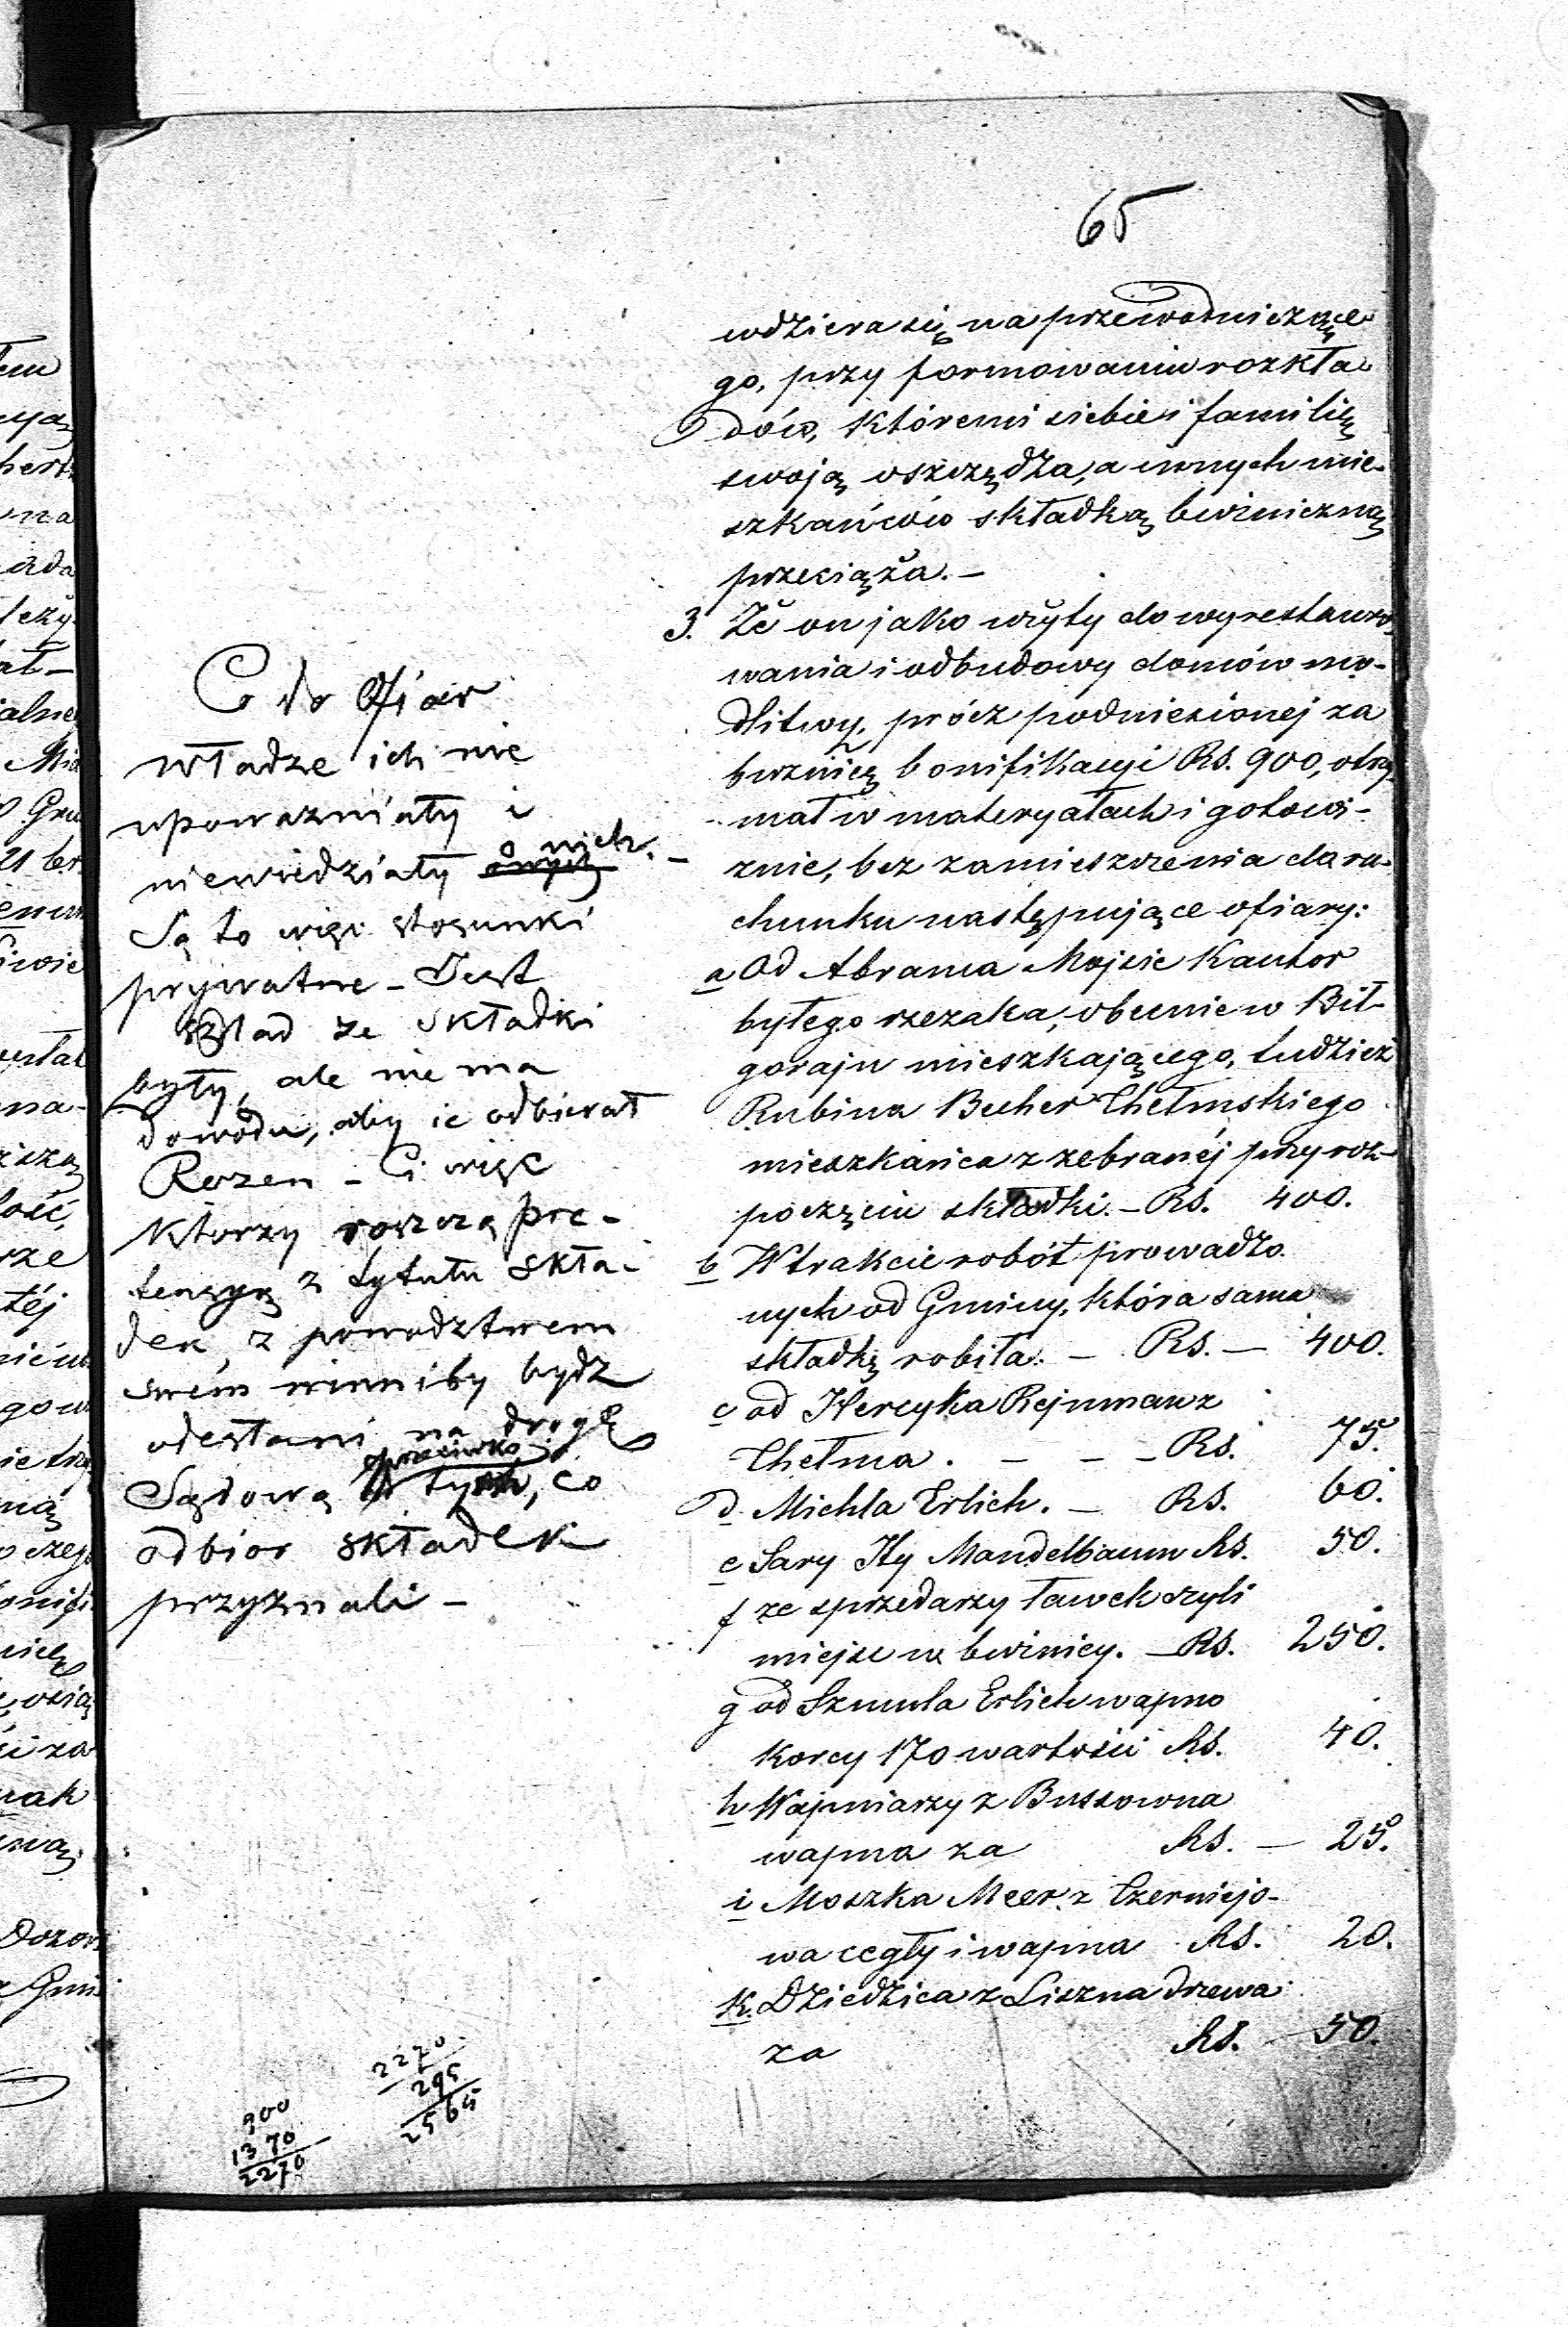 65
wdziera się na przewodniczące-
go, przy formowaniu rozkła-
dów, któremi siebie i familię
swoją oszczędza, a innych mie-
szkańców składką bużniczną
przeciąża. —
3. Że on jako użyty do wyrestauro-
wania i odbudowy domów mo-
dlitwy, prócz podniesionej za
bużnicę bonifikacyi Rs. 900, otrzy-
mał w materyałach i gotowi-
znie, bez zamieszczenia do ra-
chunku następujące ofiary:
a Od Abrama Mojsie Kantor
byłego rzezaka, obecnie w Bił-
goraju mieszkającego, tudzież
Rubina Becher Chełmskiego
mieszkańca z zebranéj przy roz-
poczęciu składki. — Rs. 400.
b W trakcie robót prowadzo-
nych od Gminy, która sama
składkę robiła. — Rs. — 400.
c od Hercyka Rejnman z
Chełma. — — — Rs. 75.
d. Michla Erlich. — Rs. 60.
e Sary Ity Mandelbaum Rs. 50.
f ze sprzedarzy ławek czyli
miejsc w bużnicy. — Rs. 250.
g od Szmula Erlich wapno
korcy 170 wartości Rs. 40.
h Wapniarzy z Bussowna
wapna za Rs. — 25.
i Moszka Meer z Czerniejo-
wa cegły i wapna Rs. 20.
k. Dziedzica z Liszna drzewa
za Rs. — 50.
C do Ofiar
władze ich nie
upoważniały i
niewiedziały o nich. —
Są to więc stosunki
prywatne — Jest
ślad że składki
były, ale nie ma
dowodu, aby ie odbierał
Rozen — Ci więc
którzy roszczą pre-
tensyą z tytułu skła-
dek, z powodztwem
swém winniby bydz
odesłani na drogę
Sądową przeciwko tych, co
odbior składek
przyznali —
900
1370
2270
2270
295
2565